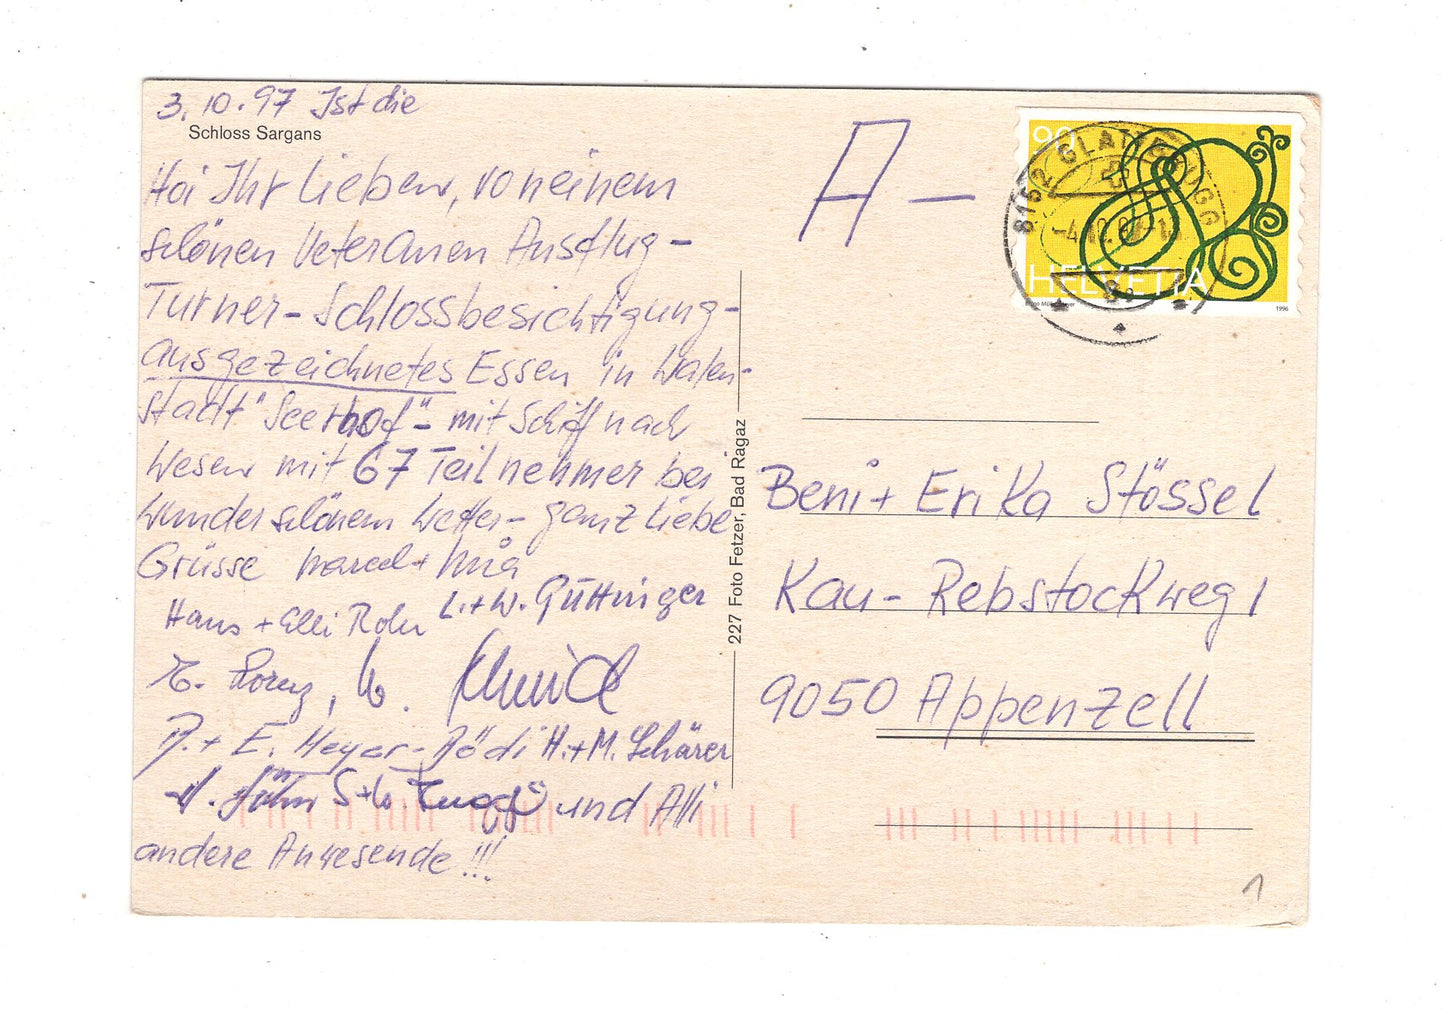 3.10.97 Ist die
Schloss Sargans
Hoi Ihr Lieben, von einem
schönen Veteranen Ausflug -
Turner - Schlossbesichtigung -
ausgezeichnetes Essen in Walen-
stadt "Seehof" - mit Schiff nach
Wesen mit 67 Teilnehmer bei
wunderschönem Wetter - ganz Liebe
Grüsse Marcel +
Hans + Elli Rohr L. + W. Güttinger
P. + E. Meyer - H. + M. Schärer
und Alli
andere Anwesende !!!
227 Foto Fetzer, Bad Ragaz
A -
90
HELVETIA
1996
8152 GLATTBRUGG
Beni + Erika Stössel
Kau - Rebstockweg 1
9050 Appenzell
1